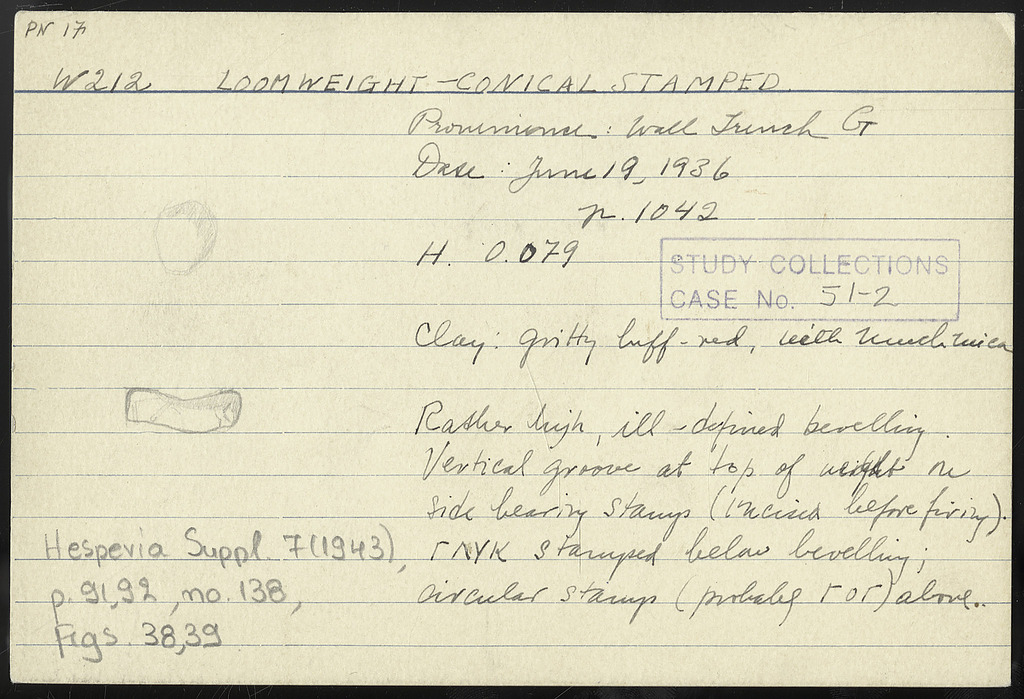 PN 17
W212 LOOMWEIGHT - CONICAL STAMPED.
Provenience: Wall Trench G
Date: June 19, 1936
p. 1042
H. 0.079
STUDY COLLECTIONS
CASE No. 51-2
Clay: gritty buff-red, with much mica
Rather high, ill-defined bevelling.
Vertical groove at top of weight on
side bearing stamps (incised before firing).
ΓΛΥΚ stamped below bevelling;
circular stamps (probably Γ or Γ) above..
Hesperia Suppl. 7 (1943),
p. 91,92, no. 138,
Figs. 38,39